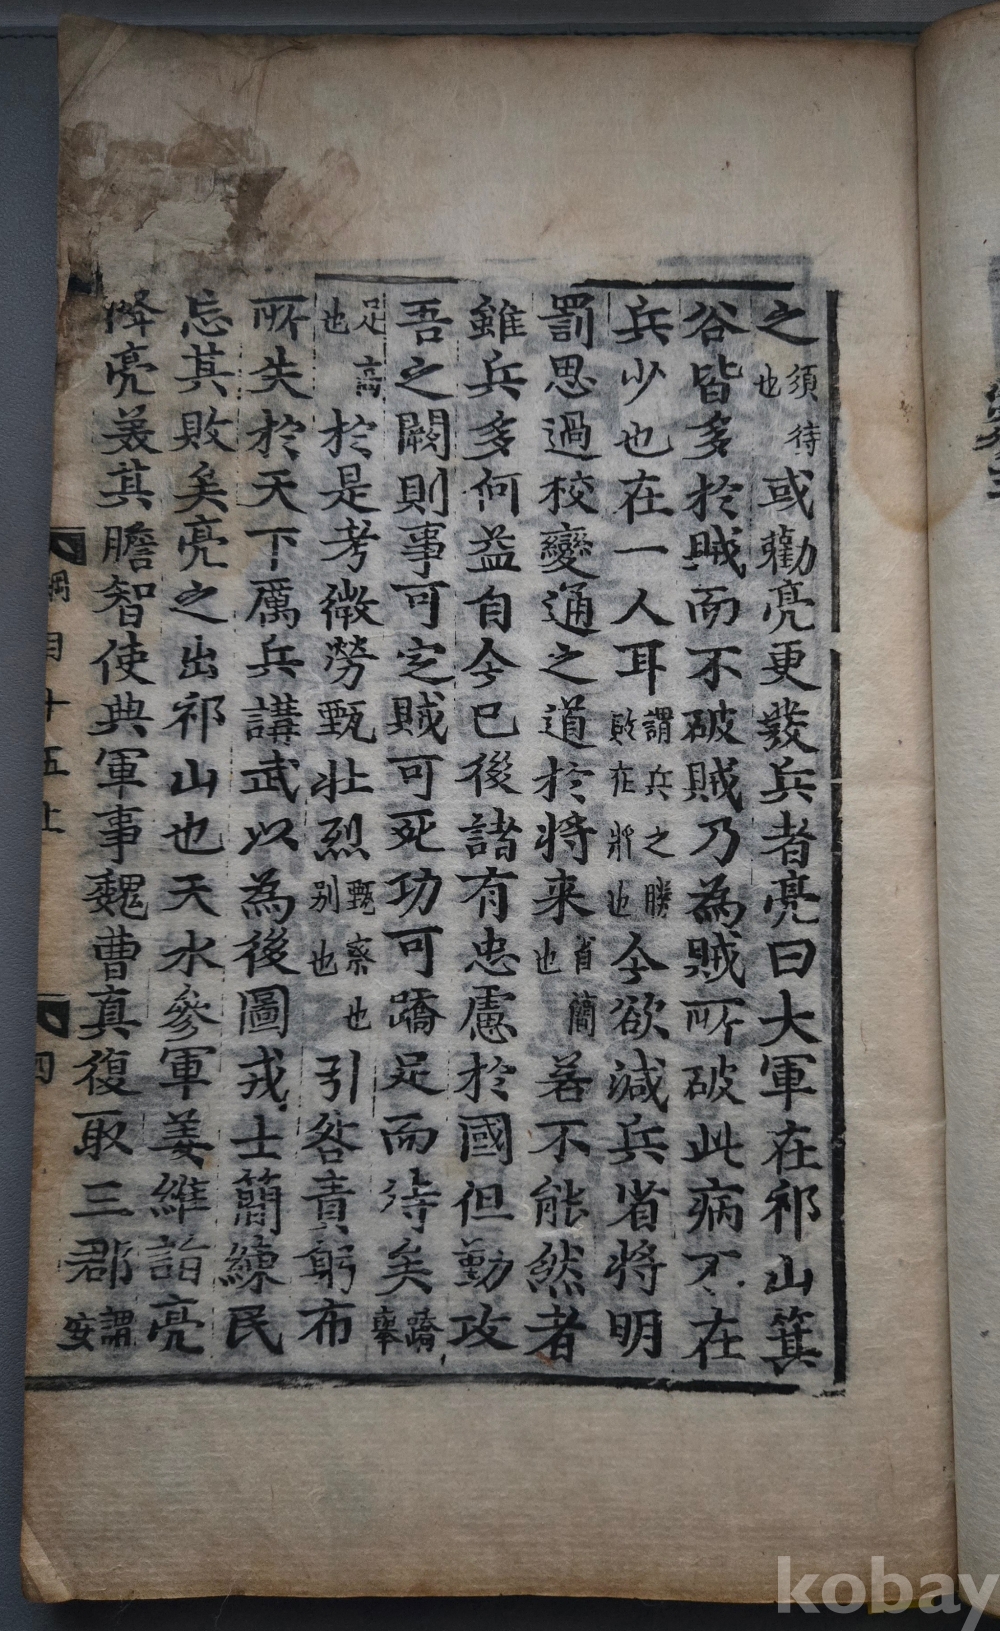 之須待也或勸亮更發兵者亮曰大軍在祁山箕
谷皆多於賊而不破賊乃為賊所破此病不在
兵少也在一人耳謂兵之勝敗在將也今欲減兵省將明
罰思過校變通之道於將来省簡也若不能然者
雖兵多何益自今已後諸有忠慮於國但勤攻
吾之闕則事可定賊可死功可蹻足而待矣蹻舉
足高也於是考微勞甄壯烈甄察也别也引咎責躬布
所失於天下厲兵講武以為後圖戎士簡練民
忘其敗矣亮之出祁山也天水參軍姜維詣亮
降亮美其膽智使典軍事魏曹真復取三郡謂安
綱目十五上
四
kobay